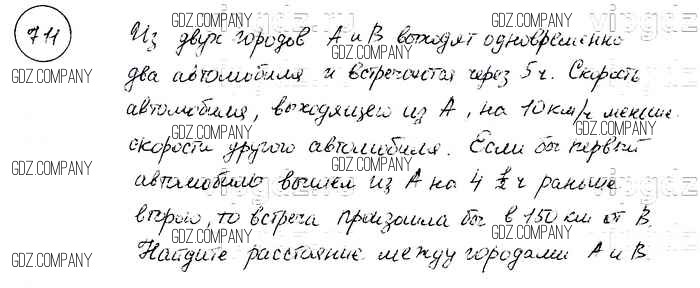 711
Из двух городов А и В выходят одновременно
два автомобиля и встречаются через 5 ч. Скорость
автомобиля, выходящего из А, на 10 км/ч меньше
скорости другого автомобиля. Если бы первый
автомобиль вышел из А на 4 1/2 ч раньше
второго, то встреча произошла бы в 150 км от В.
Найдите расстояние между городами А и В
GDZ.COMPANY
GDZ.COMPANY
GDZ.COMPANY
GDZ.COMPANY
GDZ.COMPANY
GDZ.COMPANY
GDZ.COMPANY
GDZ.COMPANY
GDZ.COMPANY
GDZ.COMPANY
GDZ.COMPANY
GDZ.COMPANY
GDZ.COMPANY
GDZ.COMPANY